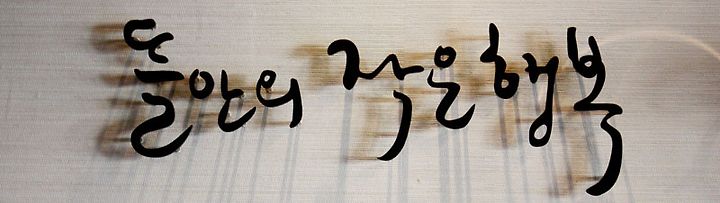 뜰안의 작은행복